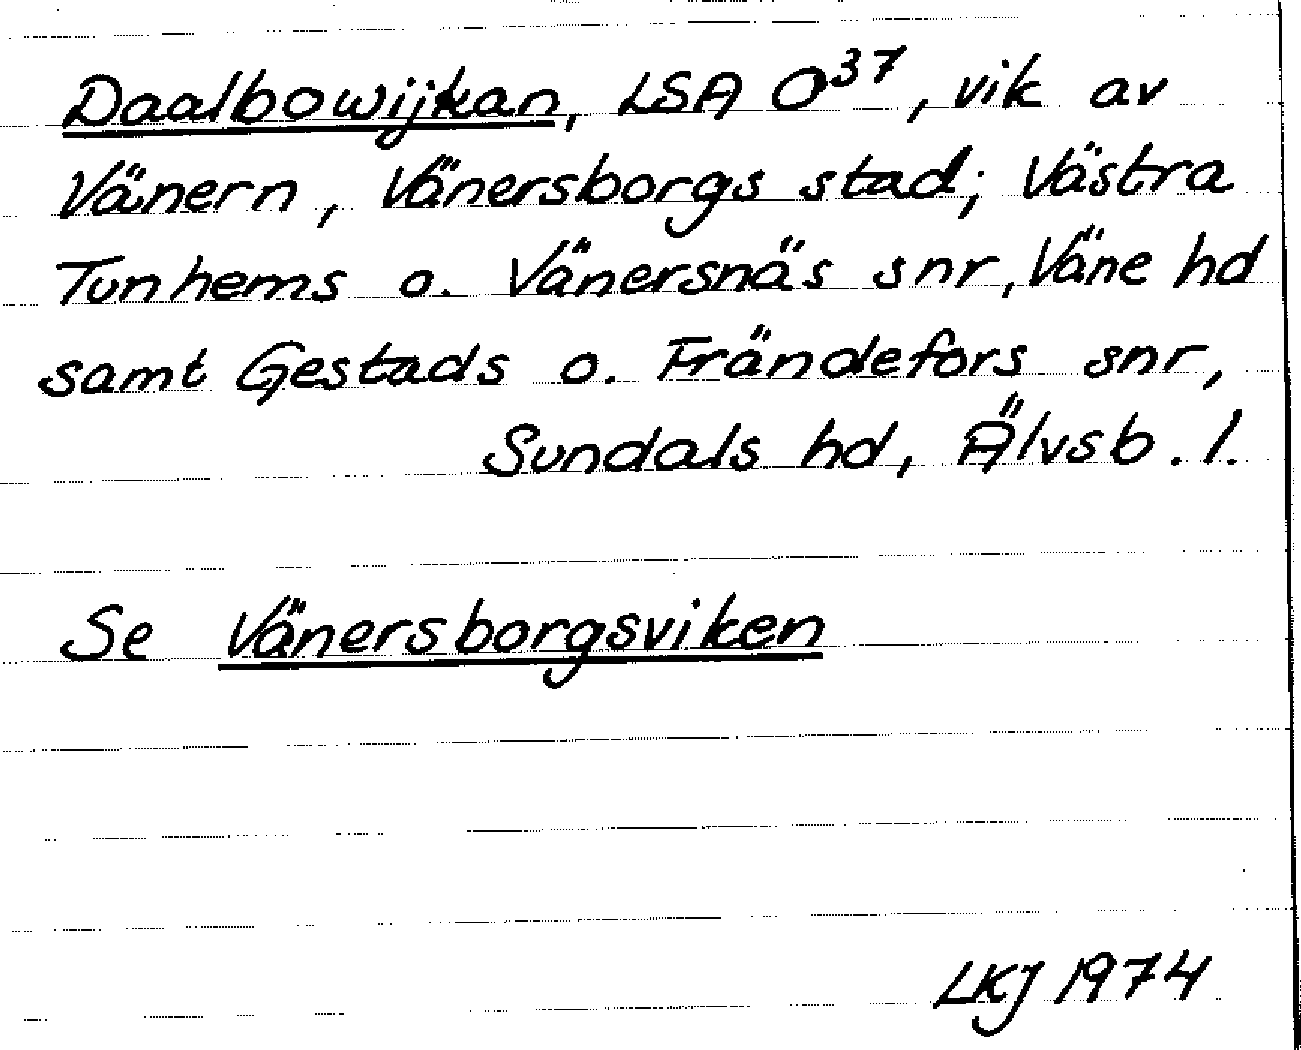 Daalbowijkan, LSA O³⁷, vik av
Vänern, Vänersborgs stad; Västra
Tunhems o. Vänersnäs snr, Väne hd
samt Gestads o. Frändefors snr,
Sundals hd, Älvsb. l.
Se Vänersborgsviken
LKJ 1974